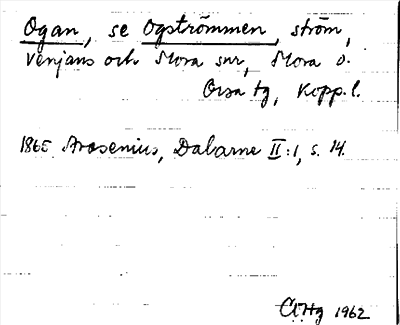 Ogan, se Ogströmmen, ström,
Venjans och Mora snr, Mora o.
Orsa tg, Kopp. l.
1865 Arosenius, Dalarne II:1, s. 14.
CTHg 1962